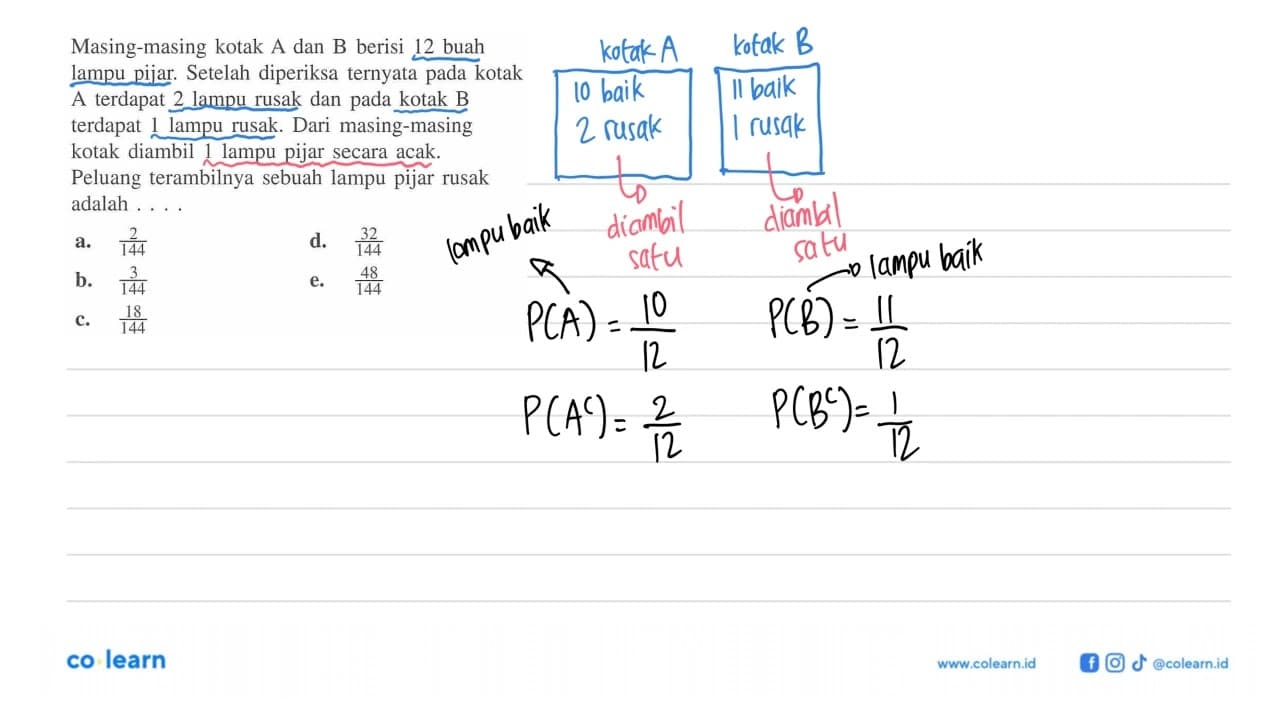 Masing-masing kotak A dan B berisi 12 buah
lampu pijar. Setelah diperiksa ternyata pada kotak
A terdapat 2 lampu rusak dan pada kotak B
terdapat 1 lampu rusak. Dari masing-masing
kotak diambil 1 lampu pijar secara acak.
Peluang terambilnya sebuah lampu pijar rusak
adalah . . . .
a. 2/144
b. 3/144
c. 18/144
d. 32/144
e. 48/144
kotak A
10 baik
2 rusak
diambil
satu
kotak B
11 baik
1 rusak
diambil
satu
lampu baik
P(A) = 10/12
P(Aᶜ) = 2/12
lampu baik
P(B) = 11/12
P(Bᶜ) = 1/12
co learn
www.colearn.id
@colearn.id